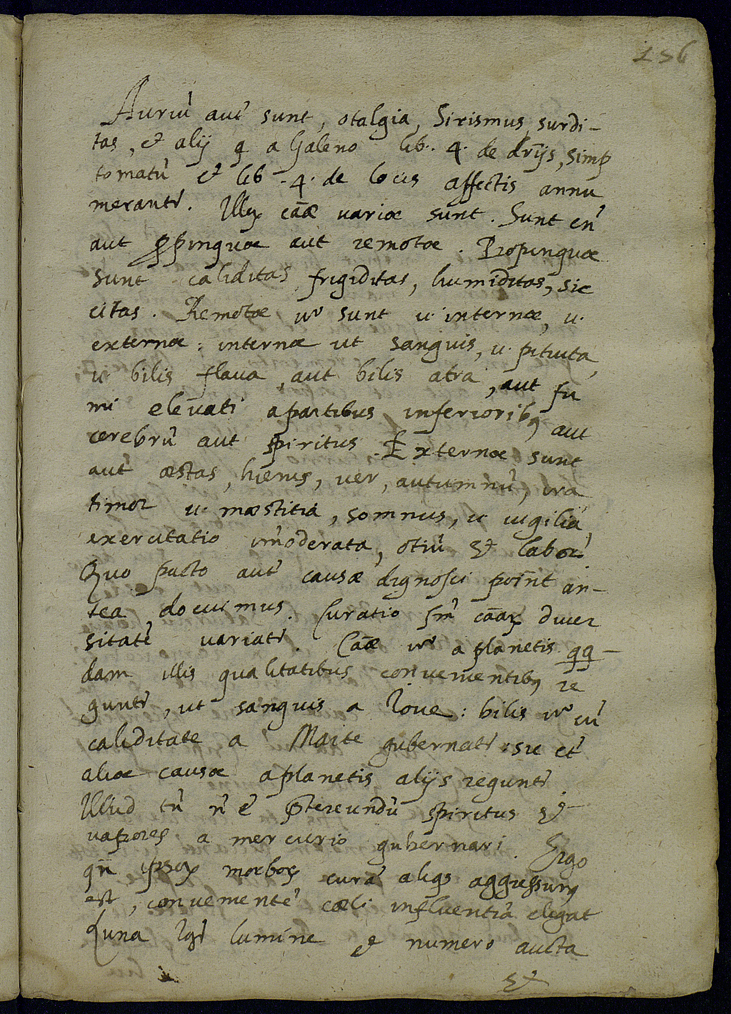 136
Auriũ aut̃ sunt, otalgia, Sirismus, surdi-
tas, et alij q̃ a Galeno lib. 4. de drijs, simp
tomatũ et lib. 4. de locis affectis annu
merant᷑. Illoꝝ cãae variae sunt. Sunt en̄
aut ꝓpinquae aut remotae. Propinquae
sunt caliditas, frigiditas, humiditas, sic
citas. Remotae ṽo sunt u. internae, u.
externae: internae ut sanguis, u. pituita,
u. bilis flava, aut bilis atra, aut fu
mi elevati a partibus inferioribꝫ aut
cerebrũ aut spiritus. Externae sunt
aut̃ aestas, hiems, ver, autumnũ, ira
timor u. maestitia, somnus, u. vigilia
exercitatio im̃oderata, otiũ et labor.
Quo pacto aut̃ causae dignosci poss̃int an-
tea docuimus. Curatio sm̃ cãaꝝ diver
sitatẽ variat᷑. Cãae ṽo a planetis qq-
dam illis qualitatibus convenientibꝫ re
gunt᷑, ut sanguis a Iove: bilis ṽo cũ
caliditate a Marte gubernat᷑: sic et̃
aliae causae a planetis alijs regunt᷑.
Illud tñ ñ ẽ p̃tereundũ spiritus et
vapores a mercurio gubernari. Ergo
qñ ipsoꝝ morboꝝ curã aliqs aggressurꝫ
est, convenientẽ caeli influentiã eligat
Luna ig᷑r lumine et numero aucta
et